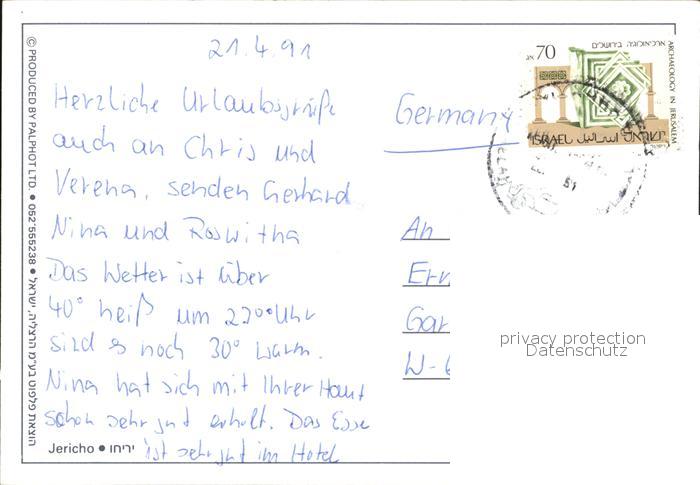 21.4.91
Herzliche Urlaubsgrüße
auch an Chris und
Verena, senden Gerhard
Nina und Roswitha
Das Wetter ist über
40° heiß um 22°° Uhr
sind es noch 30° warm.
Nina hat sich mit Ihrer Haut
schon sehr gut erholt. Das Esse
ist sehr gut im Hotel
Jericho • יריחו
© PRODUCED BY PALPHOT LTD. • 052*555238 • הוצאת פלפוט בע"מ הרצליה, ישראל
Germany
An
Erv
Gar
W-6
70 אג
ארכיאולוגיה בירושלים
ARCHAEOLOGY IN JERUSALEM
ISRAEL اسرائيل ישראל
privacy protection
Datenschutz